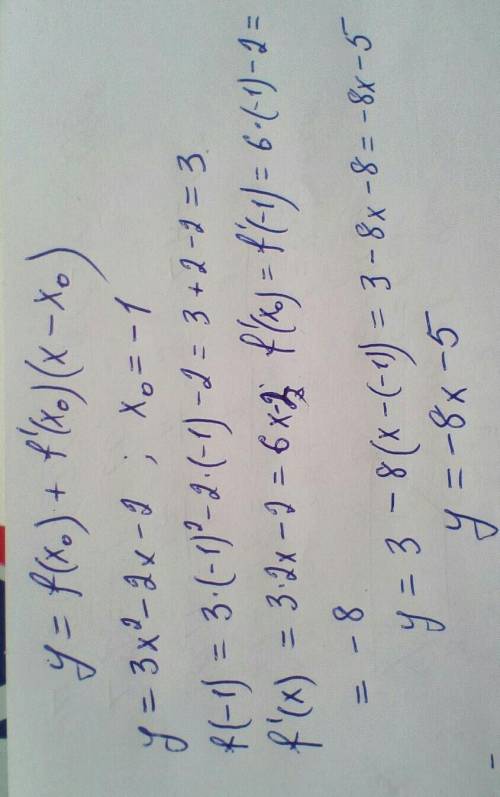 y = f(x₀) + f'(x₀)(x - x₀)
y = 3x² - 2x - 2 ; x₀ = -1
f(-1) = 3·(-1)² - 2·(-1) - 2 = 3 + 2 - 2 = 3
f'(x) = 3·2x - 2 = 6x - 2; f'(x₀) = f'(-1) = 6·(-1) - 2 =
= -8
y = 3 - 8(x - (-1)) = 3 - 8x - 8 = -8x - 5
y = -8x - 5